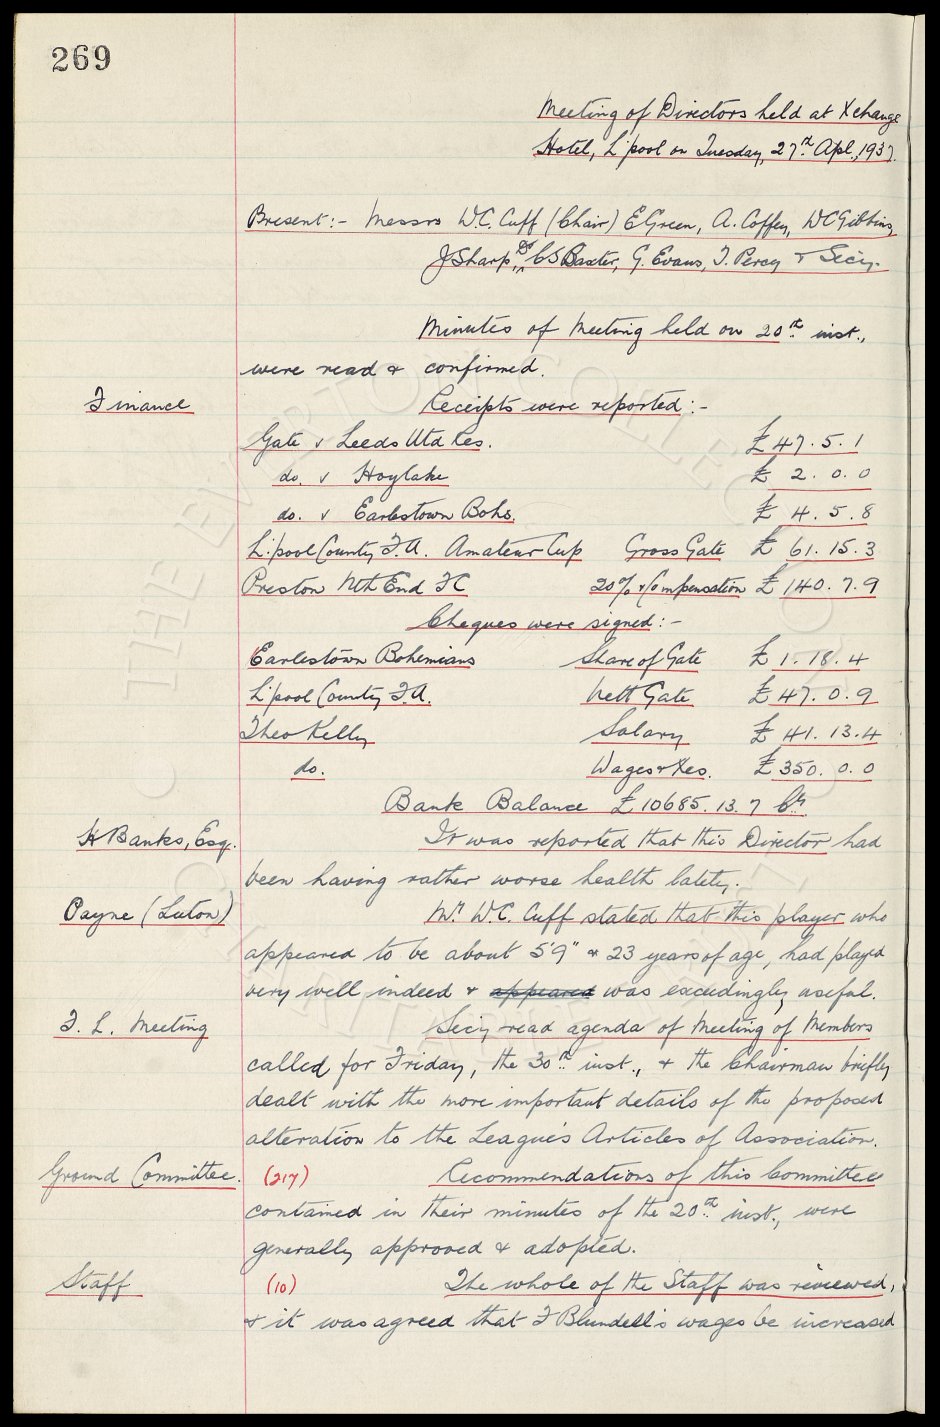 269
Meeting of Directors held at Xchange
Hotel, L'pool on Tuesday, 27th Apl., 1937.
Present:- Messrs W.C. Cuff (Chair) E Green, A. Coffey, W C Gibbins,
J Sharp, Dr C S Baxter, G. Evans, T. Percy & Secy.
Minutes of Meeting held on 20th inst.,
were read & confirmed.
Finance Receipts were reported:-
Gate v Leeds Utd Res. £47.5.1
do. v Hoylake £2.0.0
do. v Earlestown Bohs. £4.5.8
L'pool County F.A. Amateur Cup Gross Gate £61.15.3
Preston Nth End FC 20% & Compensation £140.7.9
Cheques were signed:-
Earlestown Bohemians Share of Gate £1.18.4
L'pool County F.A. Nett Gate £47.0.9
Theo Kelly Salary £41.13.4
do. Wages & Xes. £350.0.0
Bank Balance £10685.13.7 Cr.
H Banks, Esq. It was reported that this Director had
been having rather worse health lately.
Payne (Luton) Mr. W.C. Cuff stated that this player who
appeared to be about 5'9" & 23 years of age, had played
very well indeed & appeared was exceedingly useful.
F. L. Meeting Secy read agenda of Meeting of Members
called for Friday, the 30th inst., & the Chairman briefly
dealt with the more important details of the proposed
alteration to the League's Articles of Association.
Ground Committee. (217) Recommendations of this Committee
contained in their minutes of the 20th inst., were
generally approved & adopted.
Staff (10) The whole of the Staff was reviewed,
& it was agreed that F Blundell's wages be increased
THE EVERTON COLLECTION
CHARITABLE TRUST